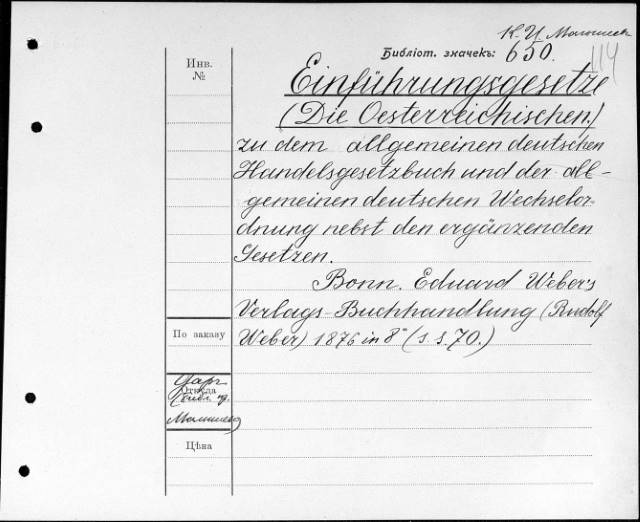 К. И. Малышев
Библіот. значекъ: 650.
114
Инв.
№
Einführungsgesetze
(Die Oesterreichischen.)
zu dem allgemeinen deutschen
Handelsgesetzbuch und der all-
gemeinen deutschen Wechselor-
dnung nebst den ergänzenden
Gesetzen.
Bonn. Eduard Weber's
Verlags-Buchhandlung (Rudolf
Weber) 1876 in 8° (s. s. 70.)
По заказу
Откуда
Малышева
Цѣна